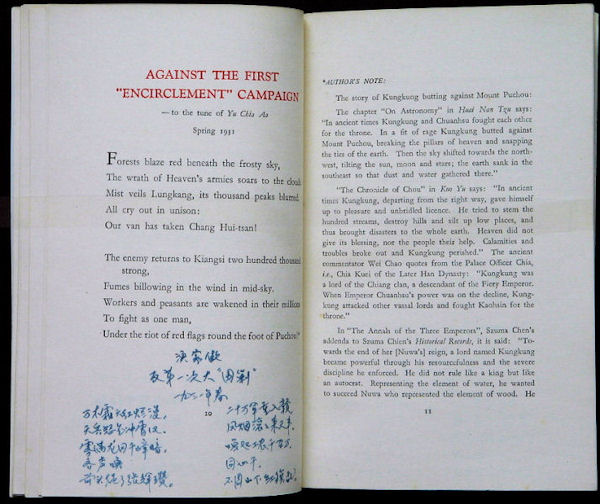 AGAINST THE FIRST
"ENCIRCLEMENT" CAMPAIGN
—to the tune of Yu Chia Ao
Spring 1931
Forests blaze red beneath the frosty sky,
The wrath of Heaven's armies soars to the clouds
Mist veils Lungkang, its thousand peaks blurred.
All cry out in unison:
Our van has taken Chang Hui-tsan!
The enemy returns to Kiangsi two hundred thousand
strong,
Fumes billowing in the wind in mid-sky.
Workers and peasants are wakened in their millions
To fight as one man,
Under the riot of red flags round the foot of Puchou!*
渔家傲
反第一次大"围剿"
一九三一年春
万木霜天红烂漫,
天兵怒气冲霄汉。
雾满龙冈千嶂暗,
齐声唤,
前头捉了张辉瓒。
二十万军重入赣,
风烟滚滚来天半。
唤起工农千百万,
同心干,
不周山下红旗乱。
10
*AUTHOR'S NOTE:
The story of Kungkung butting against Mount Puchou:
The chapter "On Astronomy" in Huai Nan Tzu says:
"In ancient times Kungkung and Chuanhsu fought each other
for the throne. In a fit of rage Kungkung butted against
Mount Puchou, breaking the pillars of heaven and snapping
the ties of the earth. Then the sky shifted towards the north-
west, tilting the sun, moon and stars; the earth sank in the
southeast so that dust and water gathered there."
"The Chronicle of Chou" in Kuo Yu says: "In ancient
times Kungkung, departing from the right way, gave himself
up to pleasure and unbridled licence. He tried to stem the
hundred streams, destroy hills and silt up low places, and
thus brought disasters to the whole earth. Heaven did not
give its blessing, nor the people their help. Calamities and
troubles broke out and Kungkung perished." The ancient
commentator Wei Chao quotes from the Palace Officer Chia,
i.e., Chia Kuei of the Later Han Dynasty: "Kungkung was
a lord of the Chiang clan, a descendant of the Fiery Emperor.
When Emperor Chuanhsu's power was on the decline, Kung-
kung attacked other vassal lords and fought Kaohsin for the
throne."
In "The Annals of the Three Emperors", Szuma Chen's
addenda to Szuma Chien's Historical Records, it is said: "To-
wards the end of her [Nuwa's] reign, a lord named Kungkung
became powerful through his resourcefulness and the severe
discipline he enforced. He did not rule like a king but like
an autocrat. Representing the element of water, he wanted
to succeed Nuwa who represented the element of wood. He
11